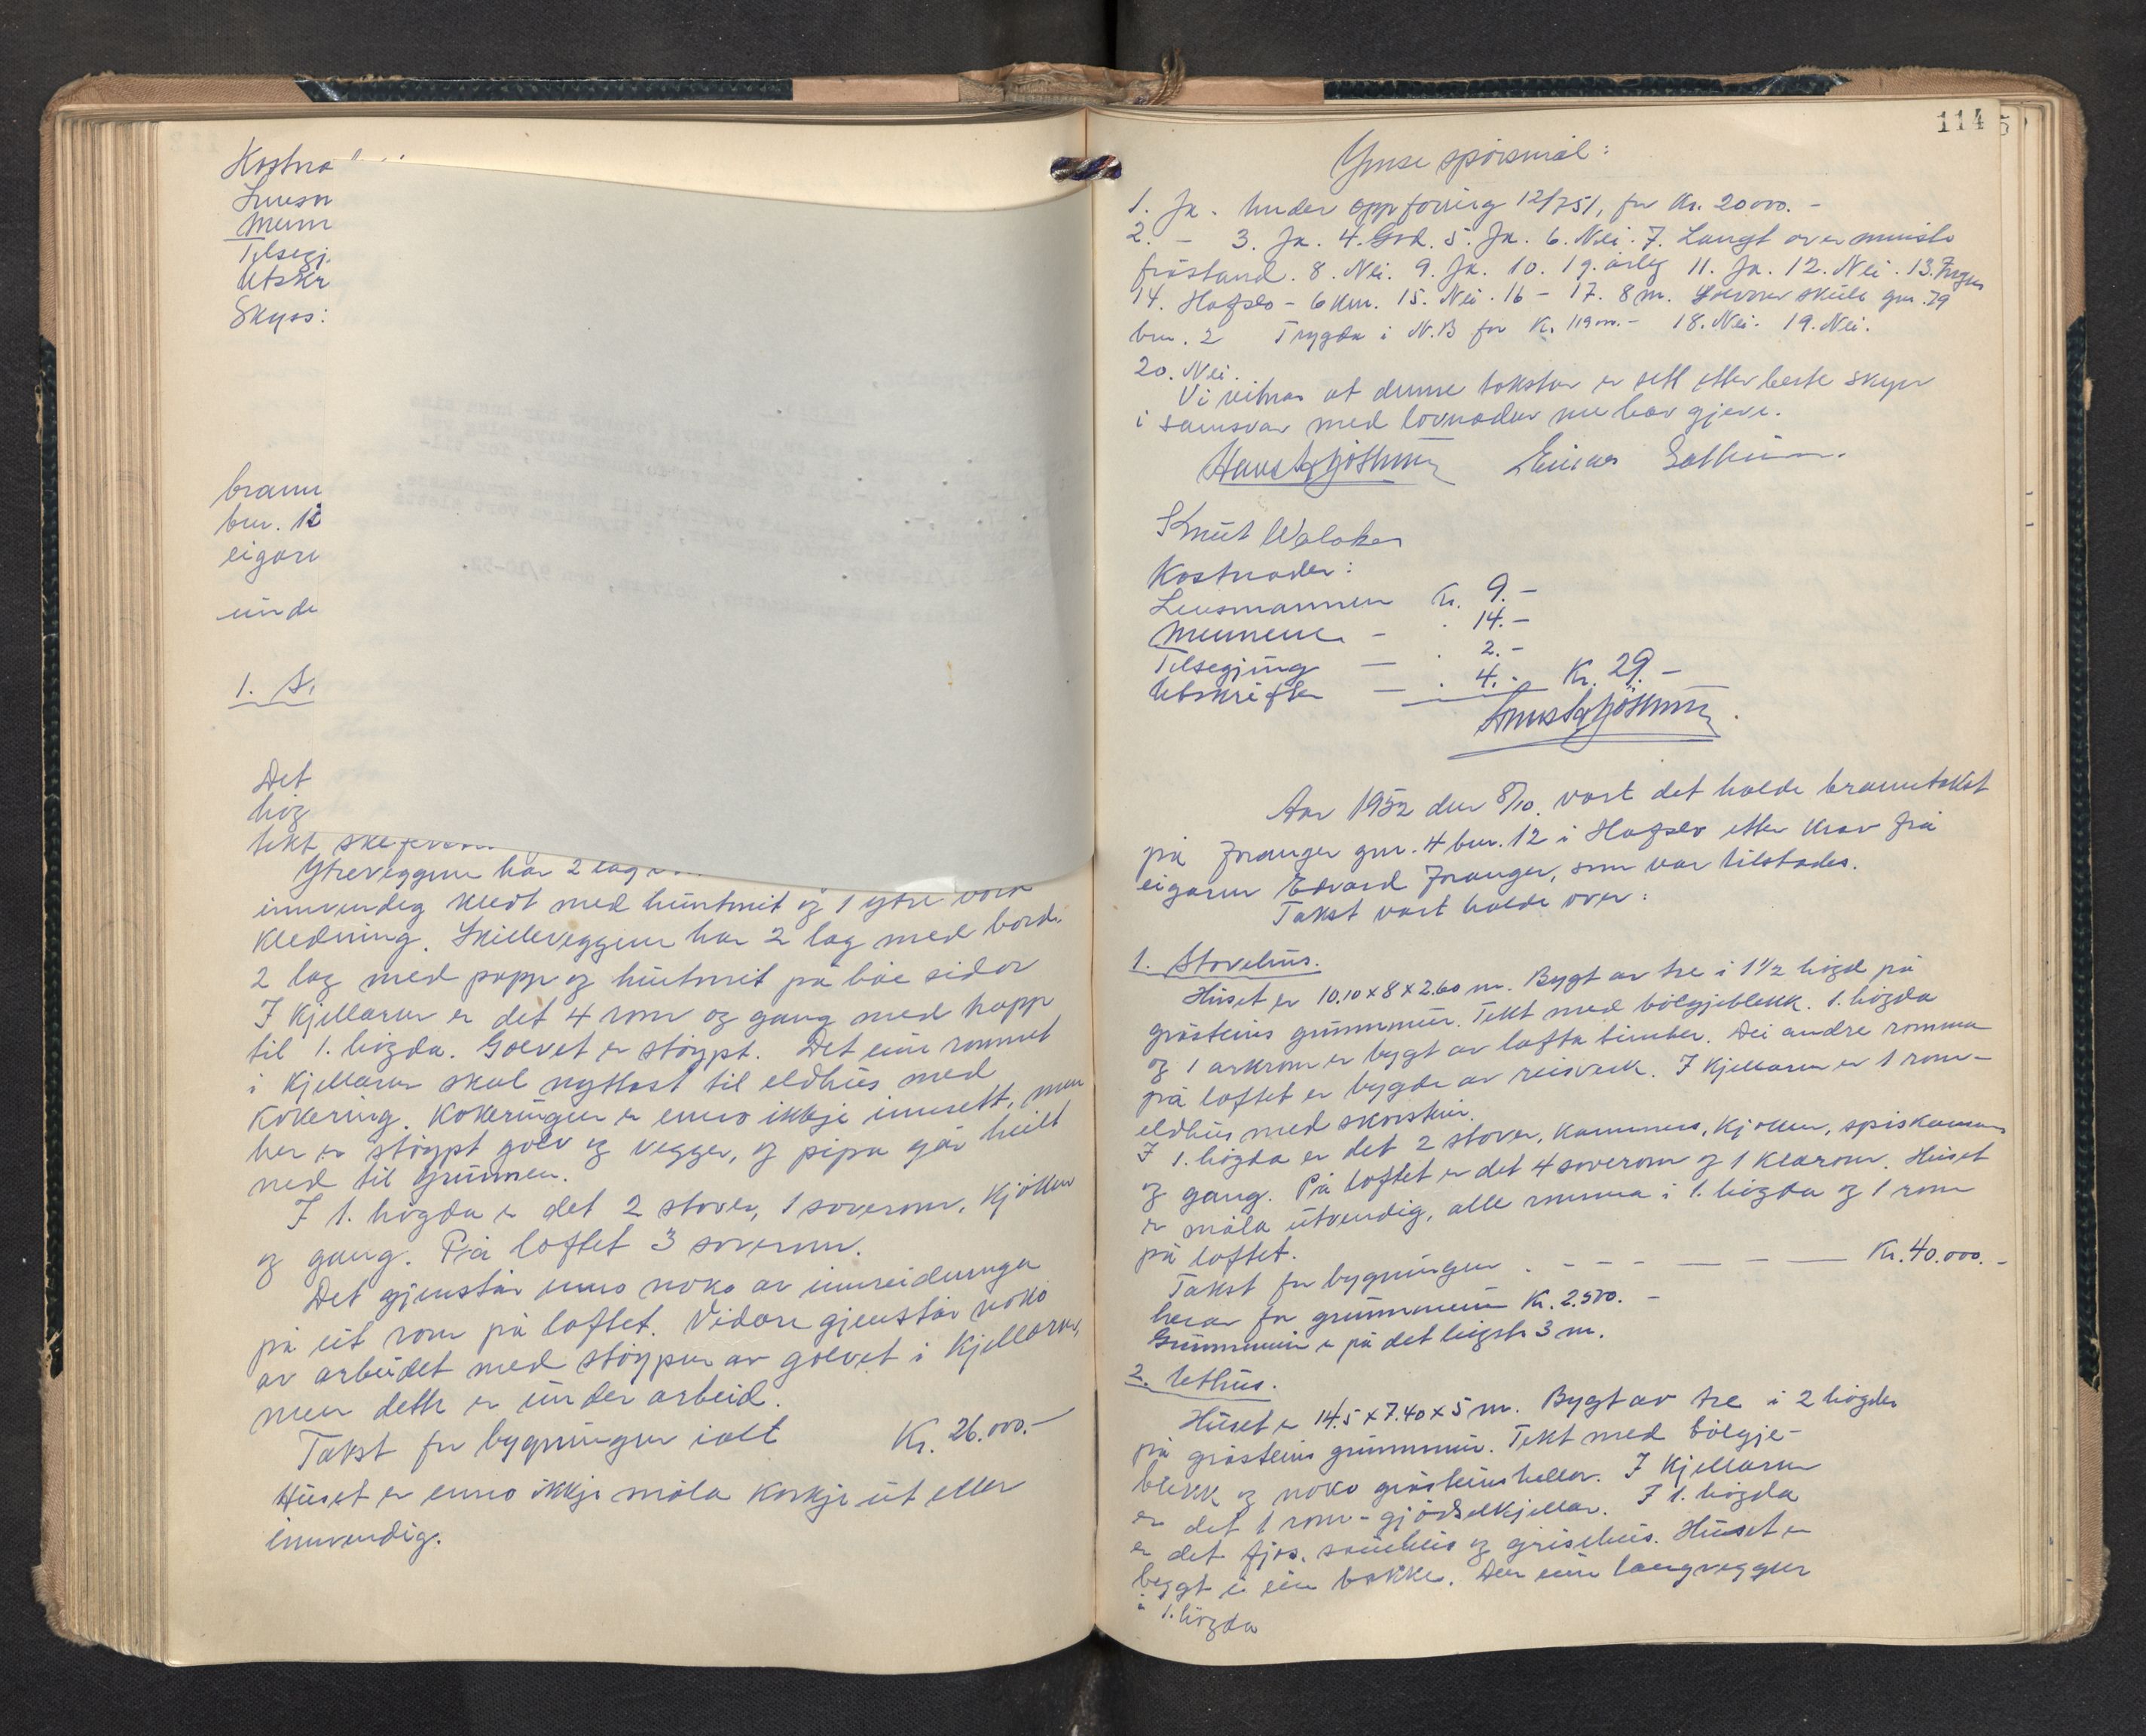 Kostna
Lensm
Menn
Tilsegj.
Utskr
Skyss:
brann
bnr. 12
eigare
unde
1. St
Det
høg
tekt skifer
Ytreveggene har 2 lag
innvendig kledt med huntonit og 1 ytre bord
kledning. Skilleveggene har 2 lag med bord.
2 lag med papp og huntonit på båe sidor
I kjellaren er det 4 rom og gang med trapp
til 1. høgda. Golvet er støypt. Det eine rommet
i kjellaren skal nyttast til eldhus med
kokering. Kokeringen er enno ikkje innsett, men
her er støypt golv og vegger, og pipa går heilt
ned til grunnen.
I 1. høgda er det 2 stover, 1 soverom, kjøken
og gang. På loftet 3 soverom.
Det gjenstår enno noko av innreidninga
på eit rom på loftet. Vidare gjenstår noko
av arbeidet med støypen av golvet i kjellaren,
men dette er under arbeid.
Takst for bygningen ialt Kr. 26.000.-
Huset er enno ikkje måla korkje ut eller
innvendig.
114
Ymse spørsmål:
1. Ja. Under oppføring 12/7 51, for Kr. 20000.-
2. - 3. Ja. 4. God. 5. Ja. 6. Nei. 7. Langt over minste
fråstand. 8. Nei. 9. Ja. 10. 1 g. årleg 11. Ja. 12. Nei. 13. Ingen
14. Hafslo - 6 km. 15. Nei. 16 - 17. 8 m. skule gnr. 79
bnr. 2 Trygda i N.B for Kr. 119 - 18. Nei. 19. Nei.
20. Nei.
Vi vitnar at denne taksten er sett etter beste skyn
i samsvar med lovnaden me hev gjeve.
Einar
Knut Walaker
Kostnader:
Lensmannen Kr. 9.-
Mennene - . 14.-
Tilsegjing - . 2.-
Utskrifter - . 4.- Kr. 29.-
Aar 1952 den 8/10. vart det halde branntakst
på Joranger gnr. 4 bnr. 12 i Hafslo etter krav frå
eigaren Edvard Joranger, som var tilstades.
Takst vart halde over:
1. Stovehus.
Huset er 10.10 x 8 x 2.60 m. Bygt av tre i 1 1/2 høgd på
gråsteins grunnmur. Tekt med bølgjeblekk. 1. høgda
og 1 arkrom er bygt av lafta timber. Dei andre romma
på loftet er bygde av reisverk. I kjellaren er 1 rom -
eldhus med skorstein.
I 1. høgda er det 2 stover, kammers, kjøken, spiskammers
og gang. På loftet er det 4 soverom og 1 klærom. Huset
er måla utvendig, alle romma i 1. høgda og 1 rom
på loftet.
Takst for bygningen . - - - - - Kr. 40.000.-
herav for grunnmuren Kr. 2.500.-
Grunnmuren er på det høgste 3 m.
2. Uthus.
Huset er 14.5 x 7.40 x 5 m. Bygt av tre i 2 høgder
på gråsteins grunnmur. Tekt med bølgje-
blekk og noko gråsteinsheller. I kjellaren
er det 1 rom - gjødselkjellar. I 1. høgda
er det fjos, sauehus og grisehus. Huset er
bygt i ein bakke. Den eine langveggen
i 1. høgda